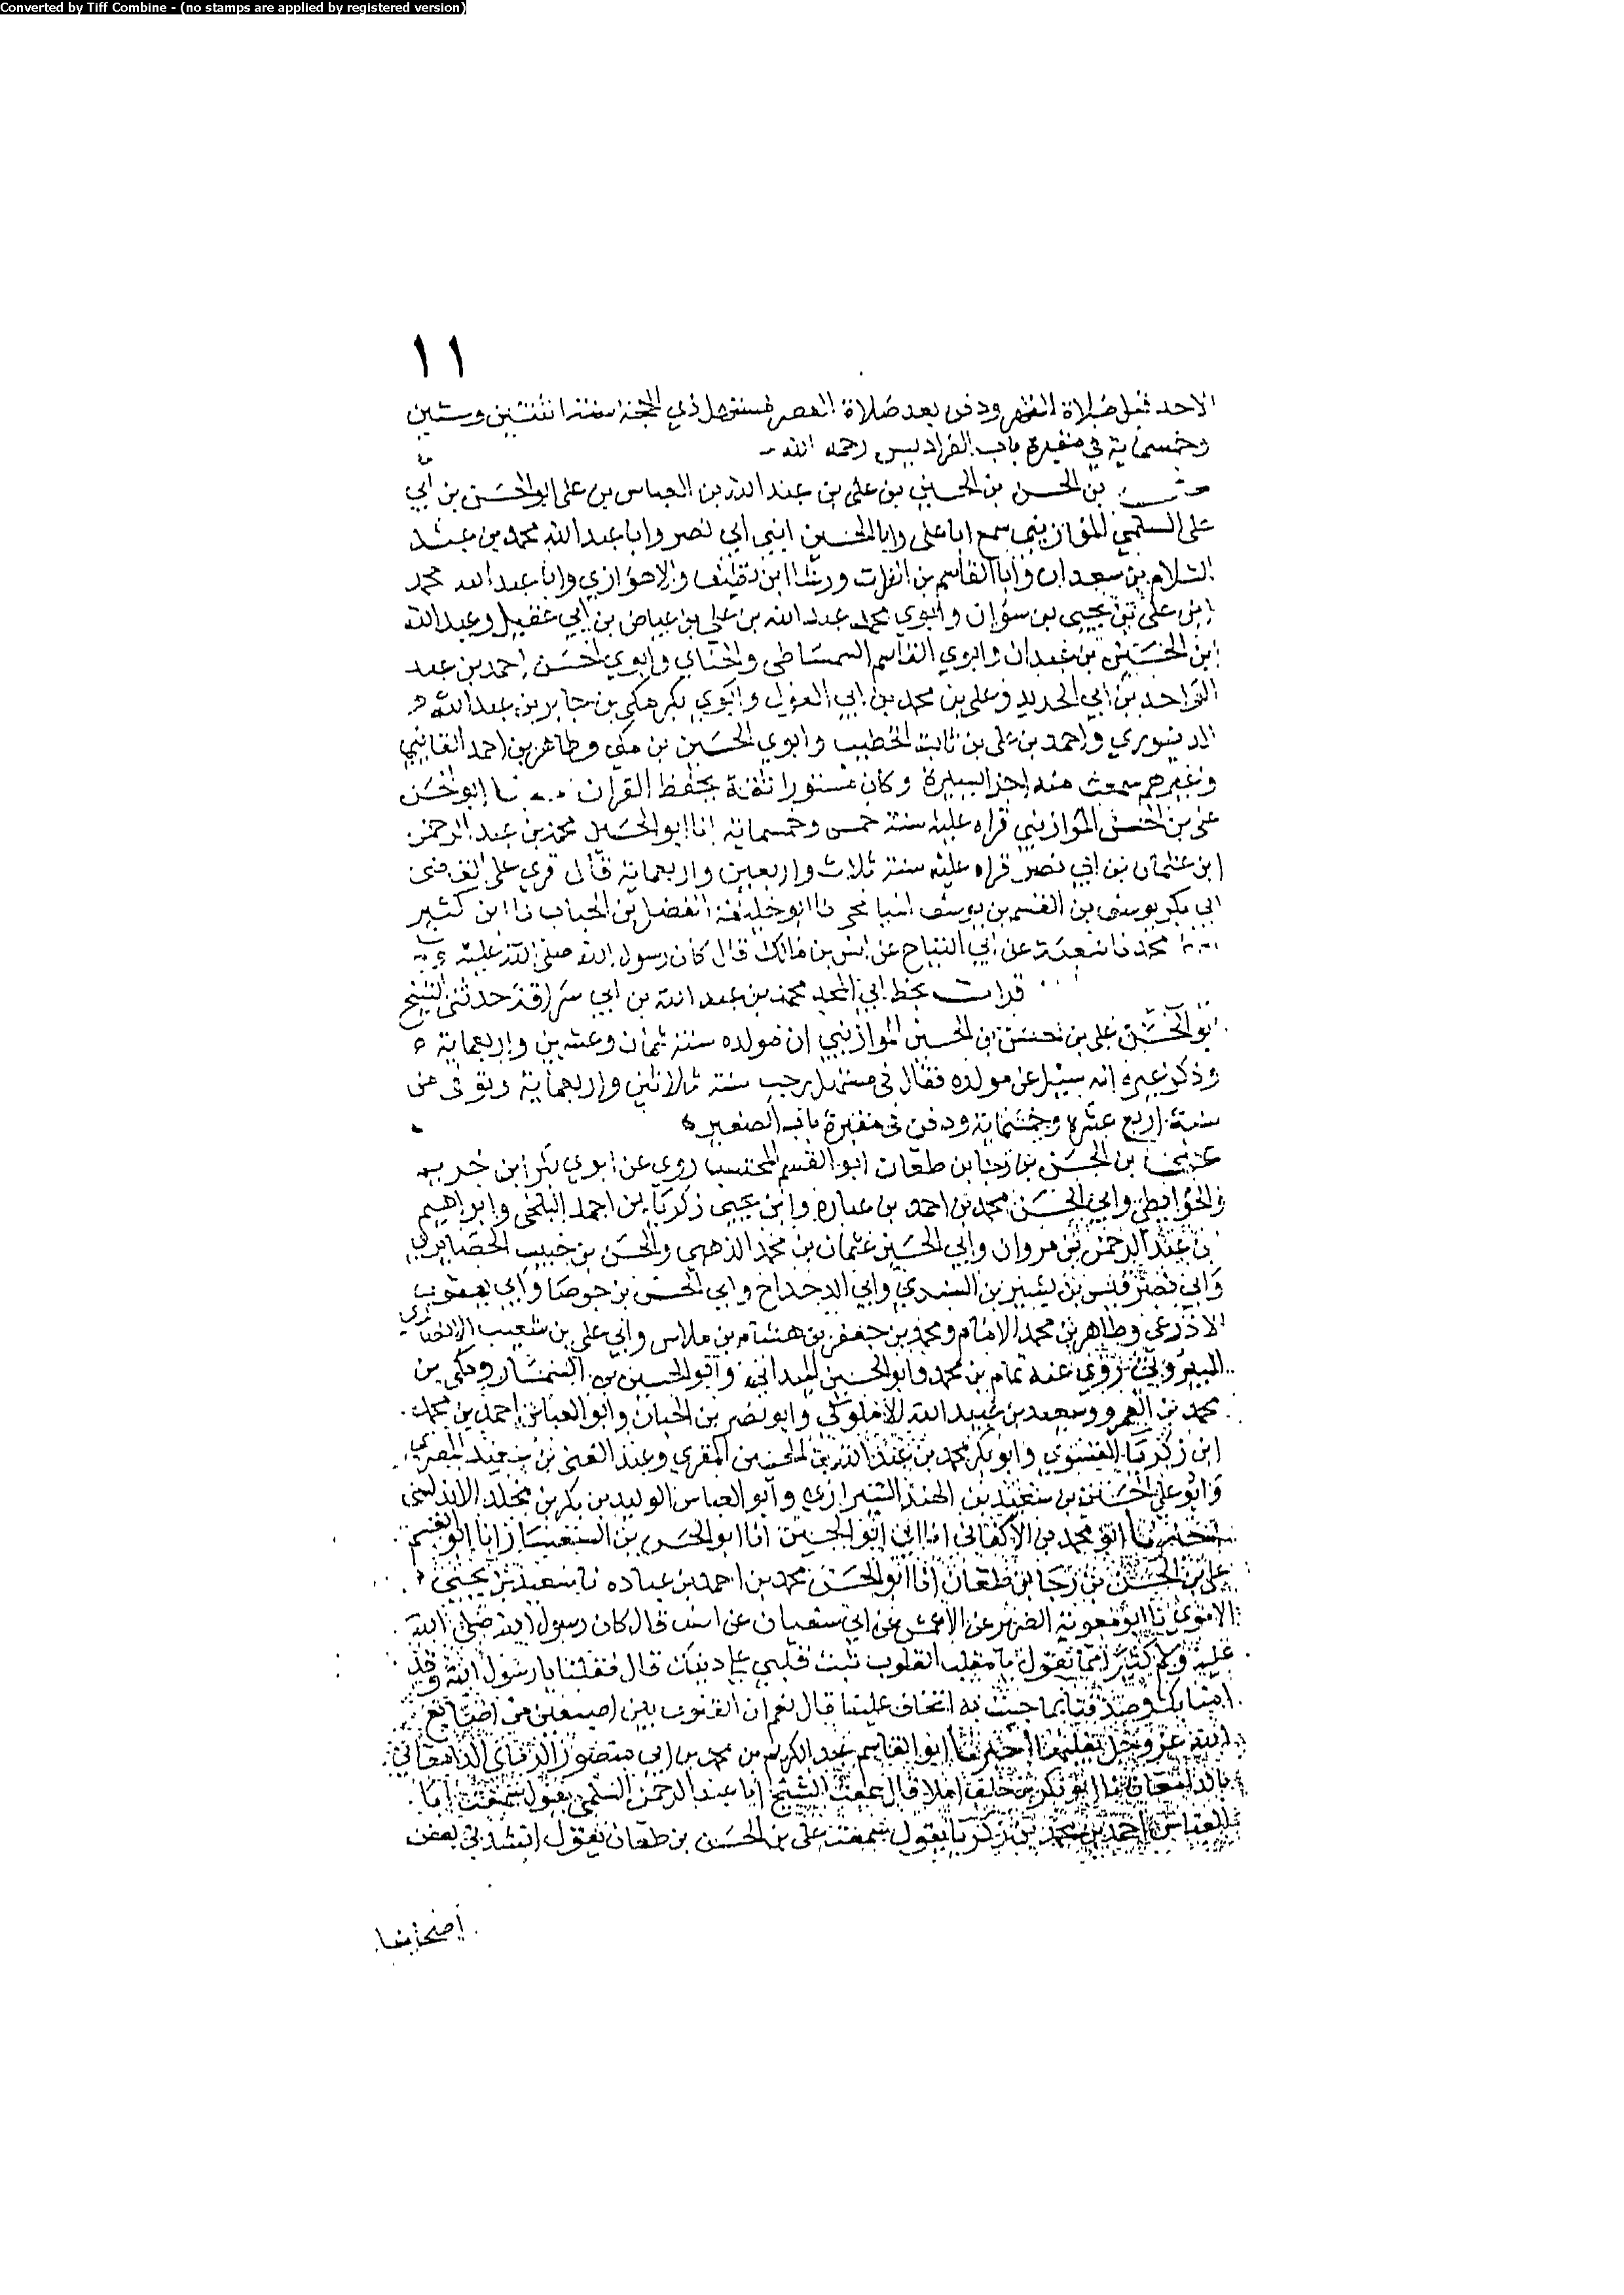 Converted by Tiff Combine - (no stamps are applied by registered version)
١١
الاحد قبل صلاة الظهر ودفن بعد صلاة العصر مستهل ذي الحجة سنة اثنتين وستين
وخمسماية في مقبرة باب الفراديس رحمه الله
بن الحسن بن الحسين بن علي بن عبد الله بن العباس بن علي ابو الحسن بن ابي
علي السلمي الموازيني سمع ابا علي وابا الحسين ابني ابي نصر وابا عبد الله محمد بن عبد
السلام بن سعدان وابا القاسم بن الفرات ورشا ابن نظيف والاهوازي وابا عبد الله محمد
ابن علي بن يحيى بن سلوان وابوي محمد عبد الله بن علي بن عياض بن ابي عقيل وعبد الله
ابن الحسين بن عبدان وابوي القاسم السمساطي والحناي وابوي الحسن احمد بن عبد
الواحد بن ابي الحديد وعلي بن محمد بن ابي الهول وابوي بكر مكي بن جابر بن عبد الله
الدينوري واحمد بن علي بن ثابت الخطيب وابوي الحسين بن مكي وطاهر بن احمد القايني
وغيرهم سمعت منه اجزا يسيرة وكان مستورا ثقة يحفظ القران نا ابو الحسن
علي بن الحسن الموازيني قراه عليه سنة خمس وخمسماية انا ابو الحسين محمد بن عبد الرحمن
ابن عثمان بن ابي نصر قراه عليه سنة ثلاث واربعين واربعماية قال قري على القاضي
ابي بكر يوسف بن القسم بن يوسف الميانجي نا ابو خليفة الفضل بن الحباب نا ابن كثير
محمد نا شعبة عن ابي التياح عن انس بن مالك قال كان رسول الله صلى الله عليه
قرات بخط ابي المجد محمد بن عبد الله بن ابي سراقة حدثني الشيخ
ابو الحسن علي بن الحسن بن الحسين الموازيني ان مولده سنة ثمان وعشرين واربعماية
وذكر غيره انه سيل عن مولده فقال في مستهل رجب سنة ثلاثين واربعماية وتوفي من
سنة اربع عشرة وخمسماية ودفن في مقبرة باب الصغير
علي بن الحسن بن رجا بن طعان ابو القسم المحتسب روي عن ابوي بكر ابن خريم
والخرايطي وابي الحسن محمد بن احمد بن عمارة وابن يحيى زكريا بن احمد البلخي وابراهيم
بن عبد الرحمن بن مروان وابي الحسين عثمان بن محمد الذهبي والحسن بن حبيب الحصايري
وابي نصر قيس بن بشير بن السندي وابي الدحداح وابي الحسن بن جوصا وابي يعقوب
الاذرعي وطاهر بن محمد الامام ومحمد بن جعفر بن هشام بن ملاس وابي علي بن شعيب الانصاري
روي عنه تمام بن محمد وابو الحسين الميداني وابو الحسن بن السمسار ومكي بن
محمد بن الغمر وسعيد بن عبيد الله الاملوكي وابو نصر بن الجبان وابو العباس احمد بن محمد
ابن زكريا النسوي وابو بكر محمد بن عبد الله بن الحسن المقري وعبد الغني بن سعيد المصري
وابو علي الحسن بن سعيد بن الهند الشيرازي وابو العباس الوليد بن بكر بن مخلد الاندلسي
اخبرنا ابو محمد بن الاكفاني انا ابو الحسين انا ابو الحسن بن السمسار انا ابو القسم
علي بن الحسن بن رجا بن طعان انا ابو الحسن محمد بن احمد بن عمارة نا سعيد بن يحيى
الاموي نا ابو معوية الضرير عن الاعمش عن ابي سفيان عن انس قال كان رسول الله صلى الله
عليه وسلم كثيرا مما يقول يا مقلب القلوب ثبت قلبي على دينك قال فقلنا يا رسول الله وقد
امنا بك وصدقنا بما جيت به اتخاف علينا قال نعم ان القلوب بين اصبعين من اصابع
الله عز وجل يقلبها اخبرنا ابو القاسم عبد الكريم بن محمد بن ابي منصور الدامغاني
بالدامغان نا ابو بكر بن خلف املا قال سمعت الشيخ ابا عبد الرحمن السلمي يقول سمعت ابا
العباس احمد بن محمد بن زكريا يقول سمعت علي بن الحسن بن طعان يقول انشدني بعض
اصحابنا